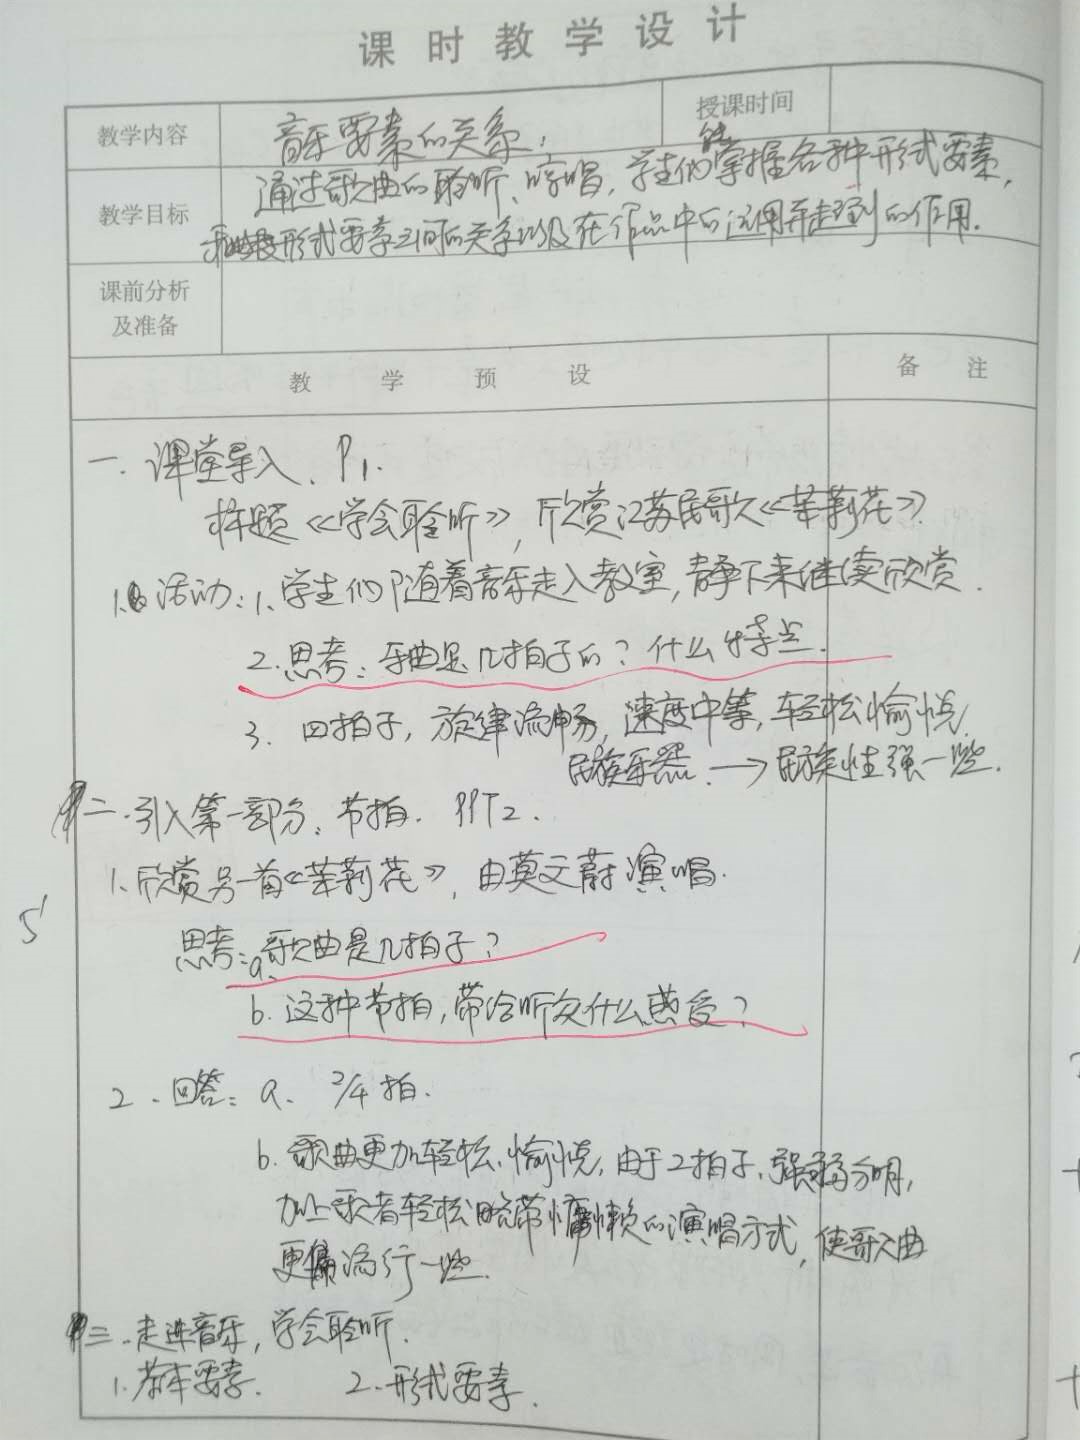 课时教学设计
教学内容 音乐要素的关系: 授课时间
教学目标 通过歌曲的聆听、哼唱,学生们能掌握各种形式要素,
形式要素之间的关系以及在作品中的运用并起到的作用.
课前分析
及准备
教学预设 备注
一.课堂导入、P1.
标题《学会聆听》,欣赏江苏民歌《茉莉花》
1.活动:1.学生们随着音乐走入教室,静下来继续欣赏.
2.思考:乐曲是几拍子的?什么特点.
3.四拍子,旋律流畅,速度中等,轻松愉悦
民族乐器.→民族性强一些.
二.引入第一部分:节拍.PPT2.
1.欣赏另一首《茉莉花》,由莫文蔚演唱.
5'
思考:a.歌曲是几拍子?
b.这种节拍,带给听众什么感受?
2.回答:a.2/4拍.
b.歌曲更加轻松、愉悦,由于2拍子,强弱分明,
加上歌者轻松略带慵懒的演唱方式,使歌曲
更偏流行一些.
三.走进音乐,学会聆听.
1.基本要素. 2.形式要素.